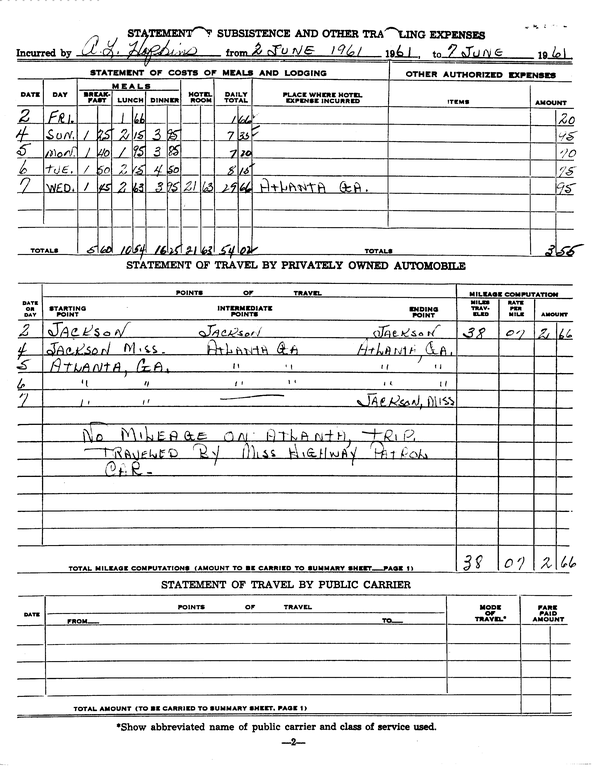 STATEMENT F SUBSISTENCE AND OTHER TRA LING EXPENSES
Incurred by A. L. Hopkins from 2 JUNE 1961 1961, to 7 JUNE 1961
STATEMENT OF COSTS OF MEALS AND LODGING OTHER AUTHORIZED EXPENSES
MEALS
DATE DAY BREAKFAST LUNCH DINNER HOTEL ROOM DAILY TOTAL PLACE WHERE HOTEL EXPENSE INCURRED ITEMS AMOUNT
2 FRI. 1 66 1 66 20
4 SUN. 1 25 2 15 3 95 7 35 95
5 MON. 1 40 1 95 3 85 7 20 70
6 TUE. 1 50 2 15 4 50 8 15 75
7 WED. 1 45 2 63 3 95 21 63 29 66 ATLANTA GA. 95
TOTALS 5 60 10 54 16 25 21 63 54 02 TOTALS 3 55
STATEMENT OF TRAVEL BY PRIVATELY OWNED AUTOMOBILE
POINTS OF TRAVEL MILEAGE COMPUTATION
DATE OR DAY STARTING POINT INTERMEDIATE POINTS ENDING POINT MILES TRAVELED RATE PER MILE AMOUNT
2 JACKSON JACKSON JACKSON 38 07 2 66
4 JACKSON MISS. ATLANTA GA ATLANTA, GA.
5 ATLANTA, GA. " " " "
6 " " " " " "
7 " " JACKSON, MISS
NO MILEAGE ON ATLANTA, TRIP.
TRAVELED BY MISS HIGHWAY PATROL
CAR.
TOTAL MILEAGE COMPUTATIONS (AMOUNT TO BE CARRIED TO SUMMARY SHEET PAGE 1) 38 07 2 66
STATEMENT OF TRAVEL BY PUBLIC CARRIER
DATE POINTS OF TRAVEL MODE OF TRAVEL* FARE PAID AMOUNT
FROM TO
TOTAL AMOUNT (TO BE CARRIED TO SUMMARY SHEET, PAGE 1)
*Show abbreviated name of public carrier and class of service used.
—2—